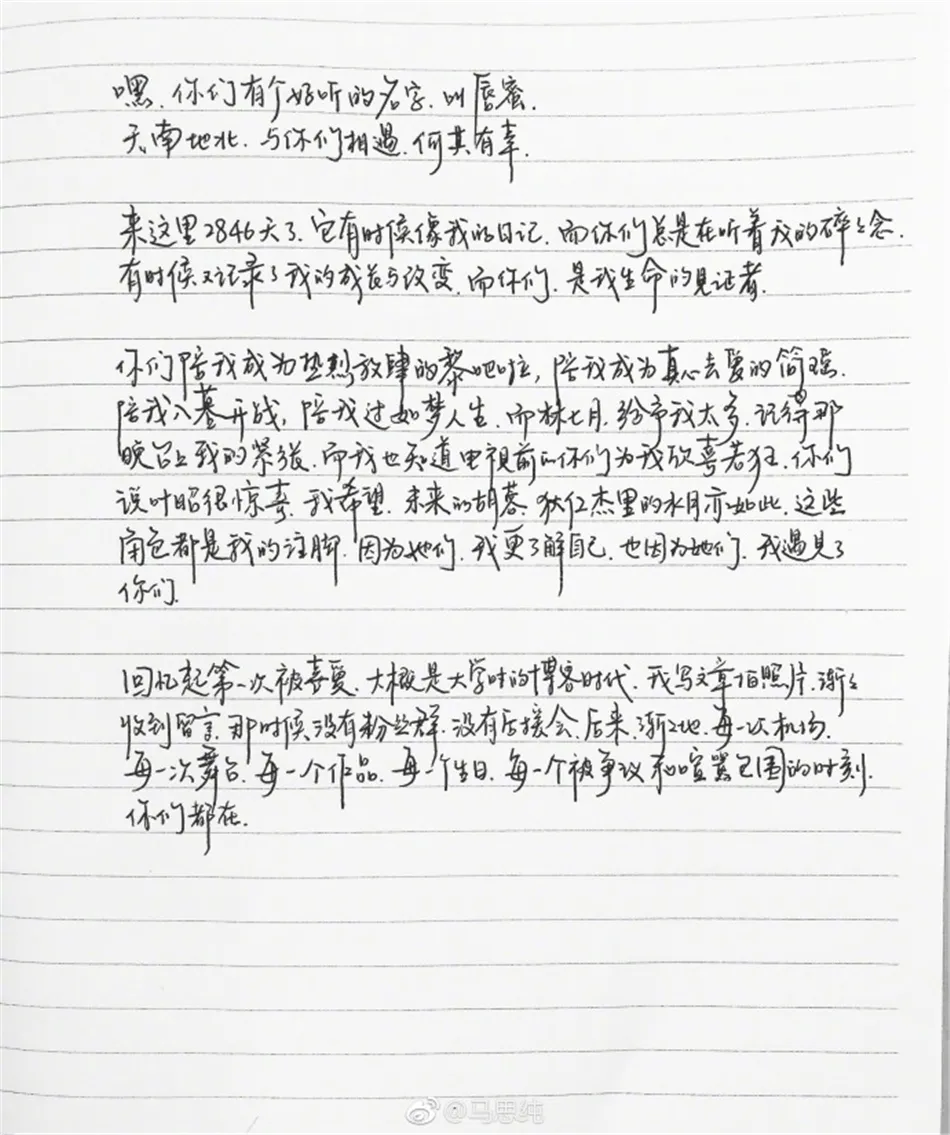 嘿.你们有个好听的名字.叫唇蜜.
天南地北.与你们相遇.何其有幸.
来这里2846天了.它有时候像我的日记.而你们总是在听着我的碎碎念.
有时候又记录了我的成长与改变.而你们.是我生命的见证者.
你们陪我成为热烈放肆的黎吧啦,陪我成为真心去爱的简瑶.
陪我入墓开战,陪我过如梦人生.而林七月.给予我太多.记得那
晚台上我的紧张.而我也知道电视前的你们为我欣喜若狂.你们
说叶昭很惊喜.我希望.未来的胡蓉.狄仁杰里的水月亦如此.这些
角色都是我的注脚.因为她们.我更了解自己.也因为她们.我遇见了
你们.
回忆起第一次被喜爱.大概是大学时的博客时代.我写文章拍照片.渐渐
收到留言.那时候.没有粉丝群.没有后援会.后来.渐渐地.每一次机场.
每一次舞台.每一个作品.每一个生日.每一个被争议和喧嚣包围的时刻.
你们都在.
@马思纯